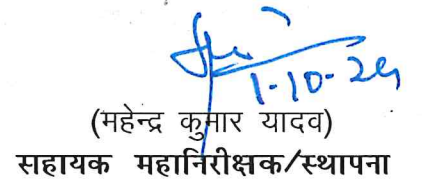 1-10-24
(महेन्द्र कुमार यादव)
सहायक महानिरीक्षक/स्थापना